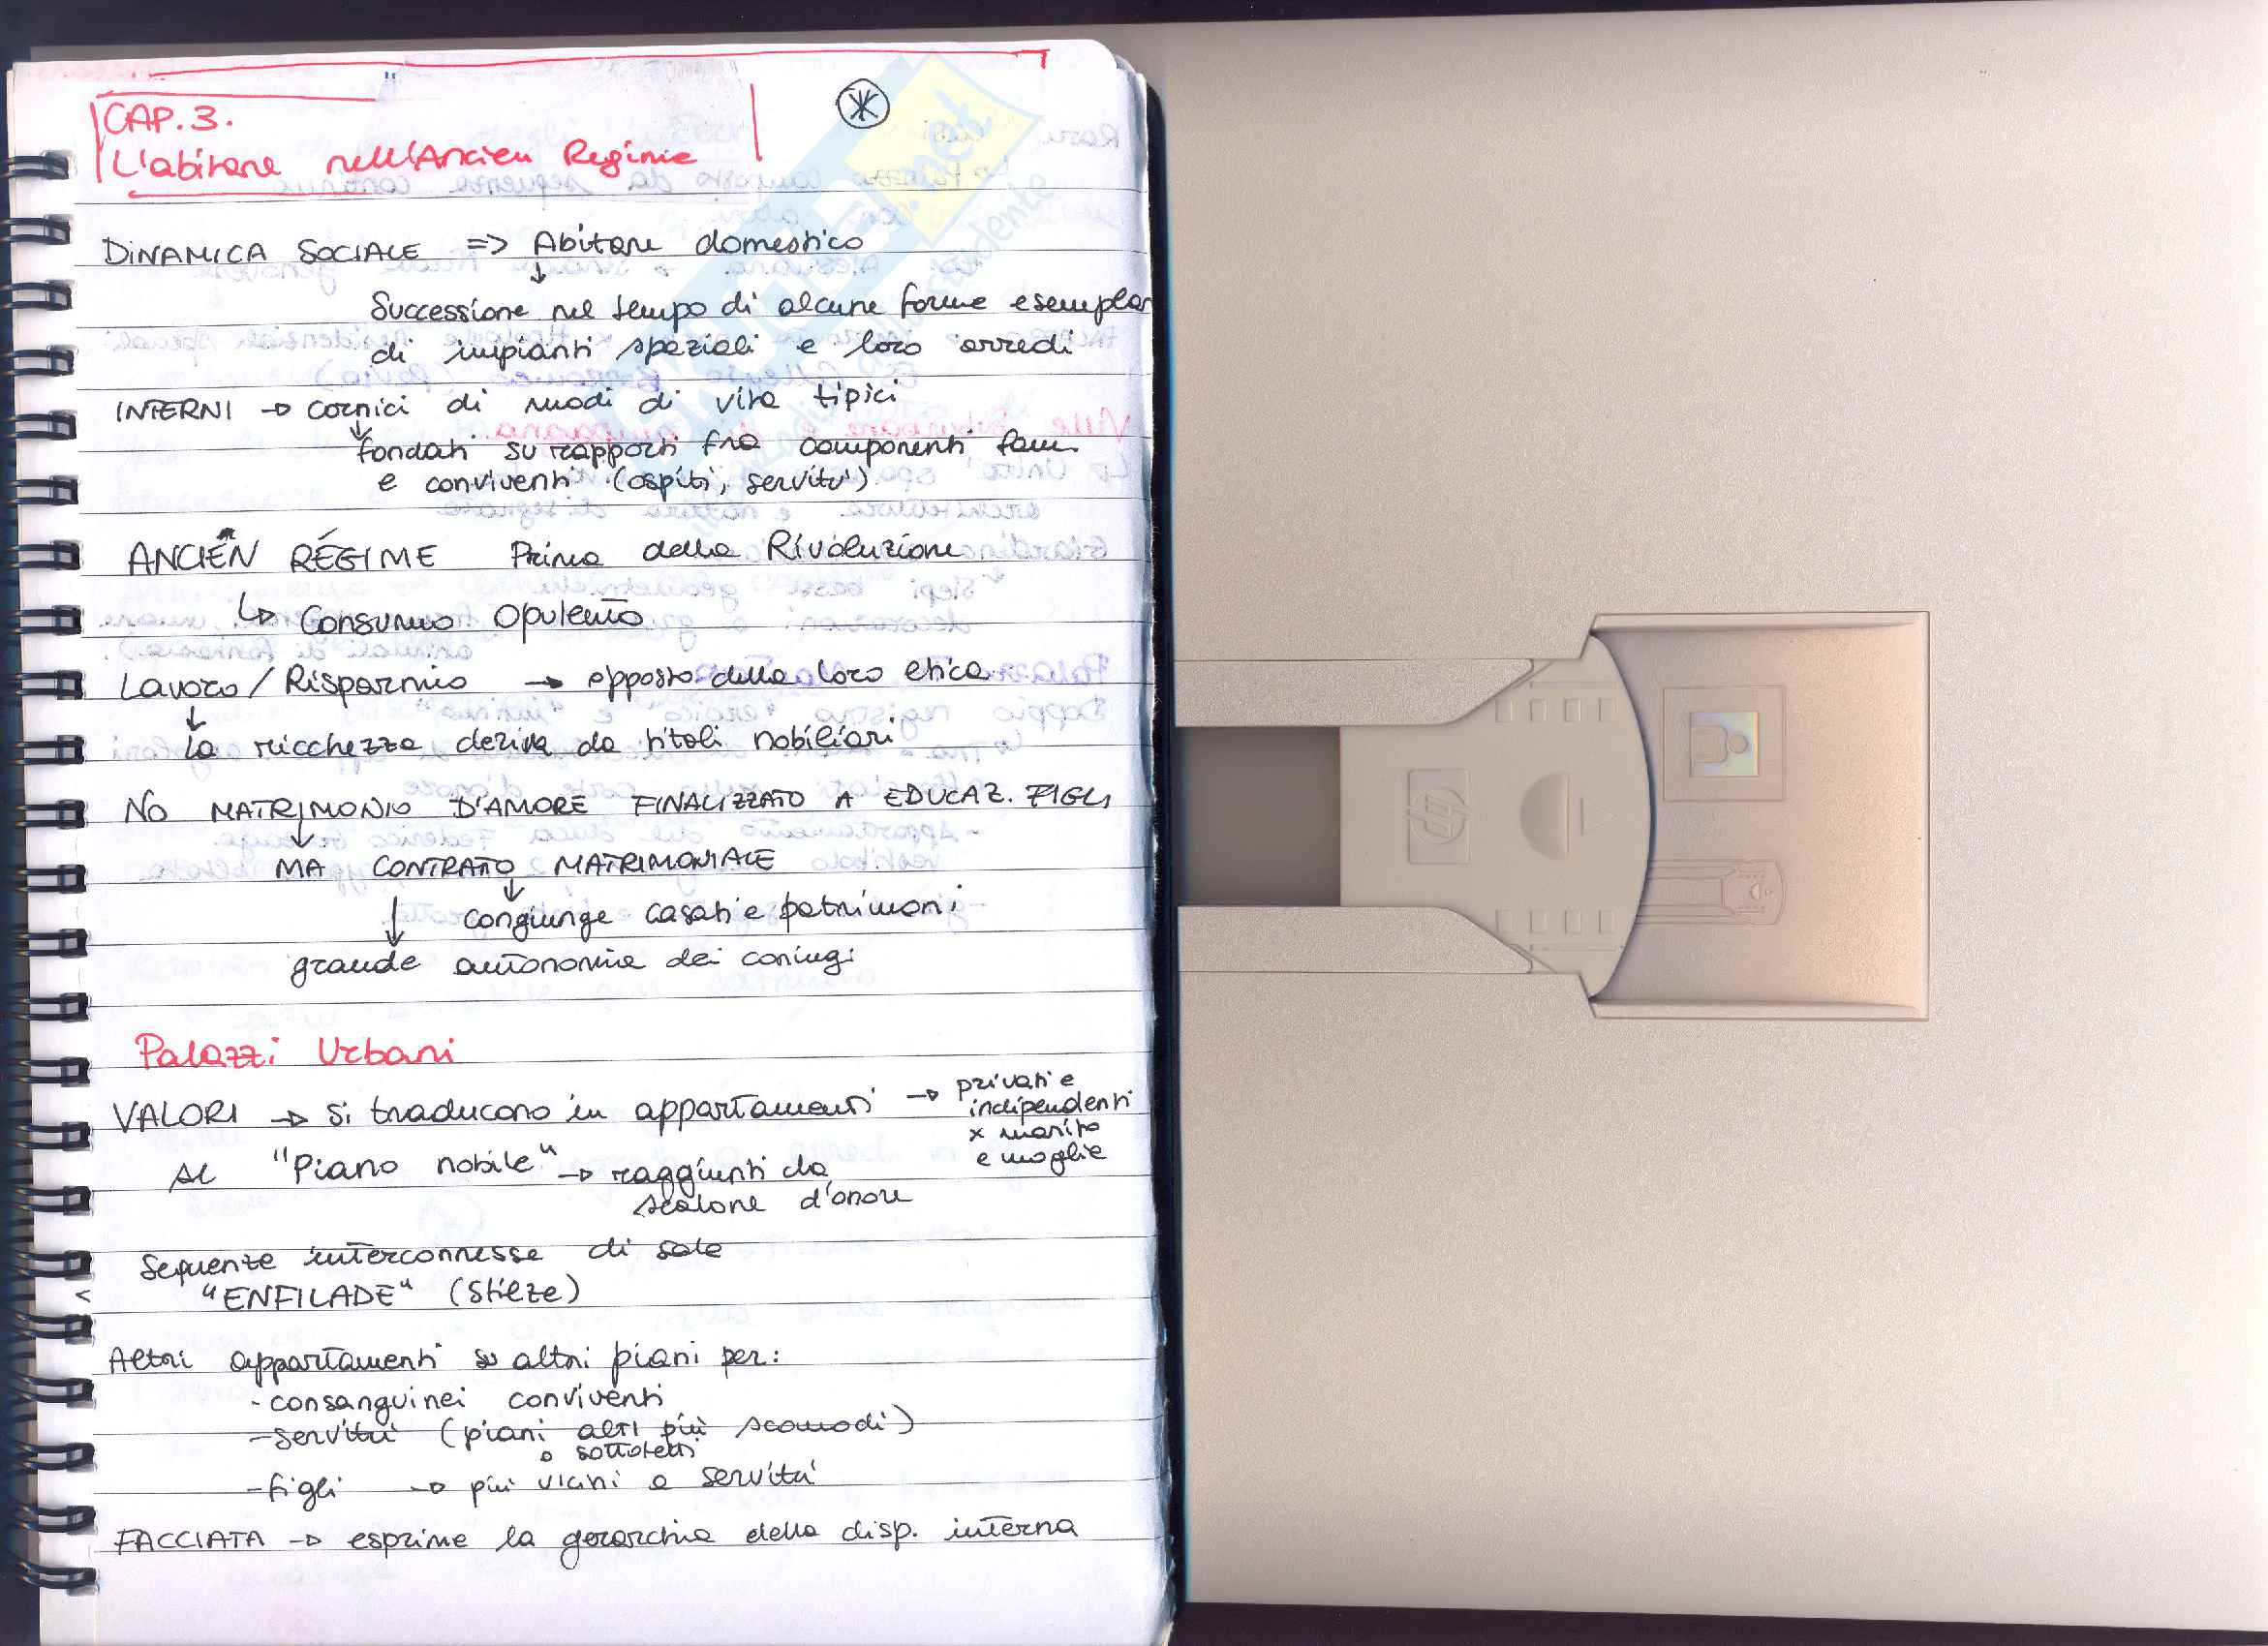 CAP. 3.
L'abitare nell'Ancien Regime
DINAMICA SOCIALE => Abitare domestico
↓
Successione nel tempo di alcune forme esemplar
di impianti spaziali e loro arredi
INTERNI → cornici di modi di vita tipici
↓
fondati su rapporti fra componenti fam.
e conviventi (ospiti, servitù)
ANCIEN RÉGIME Prima della Rivoluzione
↳ Consumo Opulento
Lavoro / Risparmio → opposto della loro etica
↓
La ricchezza deriva da titoli nobiliari
NO MATRIMONIO D'AMORE FINALIZZATO A EDUCAZ. FIGLI
↓
MA CONTRATO MATRIMONIALE
↓
congiunge casati e patrimoni
↓
grande autonomia dei coniugi
Palazzi Urbani
VALORI → si traducono in appartamenti → privati e
indipendenti
x marito
e moglie
al "Piano nobile" → raggiunti da
scalone d'onore
Sequenze interconnesse di sale
"ENFILADE" (stilze)
Altri appartamenti su altri piani per:
- consanguinei conviventi
- servitù (piani alti più scomodi)
o sottotetti
- figli → più vicini a servitù
FACCIATA → esprime la gerarchia della disp. interna
hp